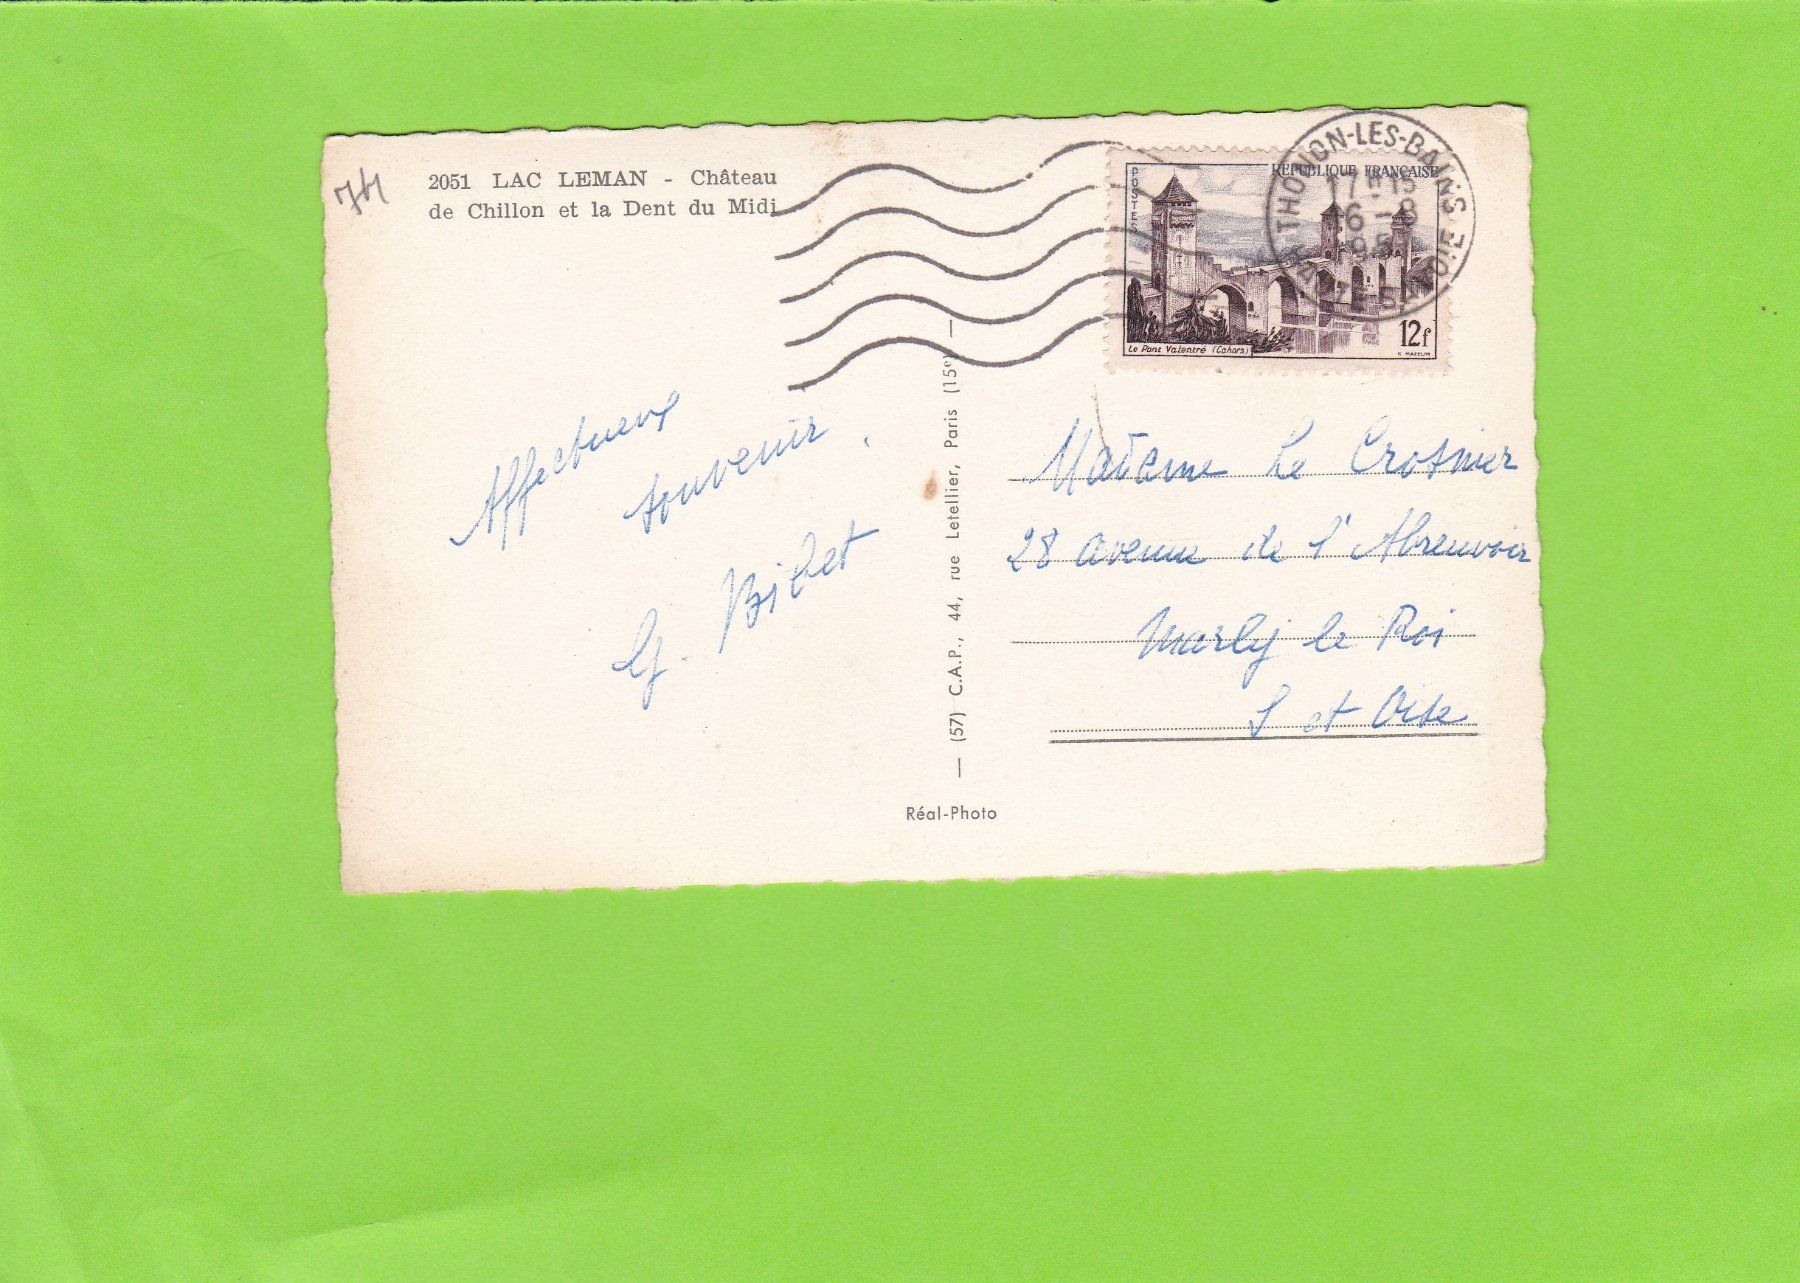 74
2051 LAC LEMAN - Château
de Chillon et la Dent du Midi
Affectueux
souvenir.
G. Bibet
— (57) C.A.P., 44, rue Letellier, Paris (15e) —
Réal-Photo
POSTES
RÉPUBLIQUE FRANÇAISE
Le Pont Valentré (Cahors)
12f
C. MAZELIN
THONON-LES-BAINS
17H15
6-8
HAUTE-SAVOIE
Madame Le Crosnier
28 avenue de l'Abreuvoir
Marly le Roi
S et Oise